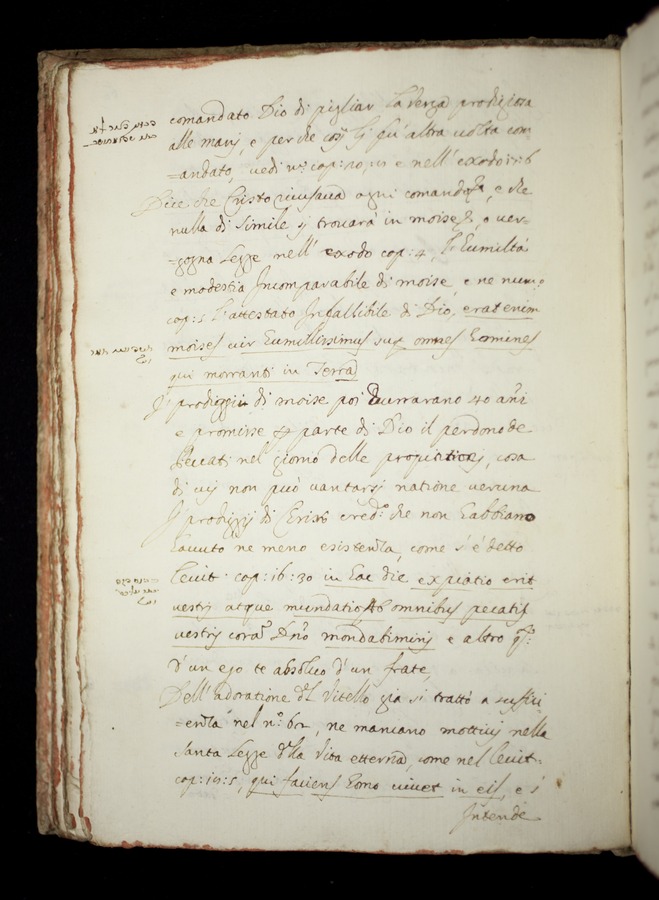 comandato Dio di pigliar la verga prodigiosa
alle mani, e perche così li fu altra volta com
=andato, vedi nº: cap: 20, e nell' exodo 17:6
Dice che Cristo ogni comand e che
nulla di simile si trovarà in moise, o ver=
=gogna legge nell' exodo cap: 4, l'Eumiltà
e modestia Incomparabile di moise, e ne num:
cap: l'attestato Infallibile di Dio, erat enim
moises vir Eumillissimus sup omnes Eomines
qui morranti in Terra
I prodiggii di moise poi durrarano 40 ani
e promisse p parte di Dio il perdono de
peccati nel giorno delle propiationi, cosa
di cui non può vantarsi natione veruna
I prodigij di Cristo cred: che non Eabbiano
Eavuto ne meno esistenza, come s'è detto
levit: cap: 16:30 in Eac die expiatio erit
vestri atque mundatio ab omnibus pecatis
vestris cora Dno mondabimini e altro q:
d'un ego te absolvo d'un frate,
Dell' adoratione del Vitello gia si trattò a suffici
=enza nel nº: 62, ne mancano mottivi nella
Santa Legge della Vita etterna, come nel levit:
cap: qui faciens Eomo vivet in eis, e s'
Intende